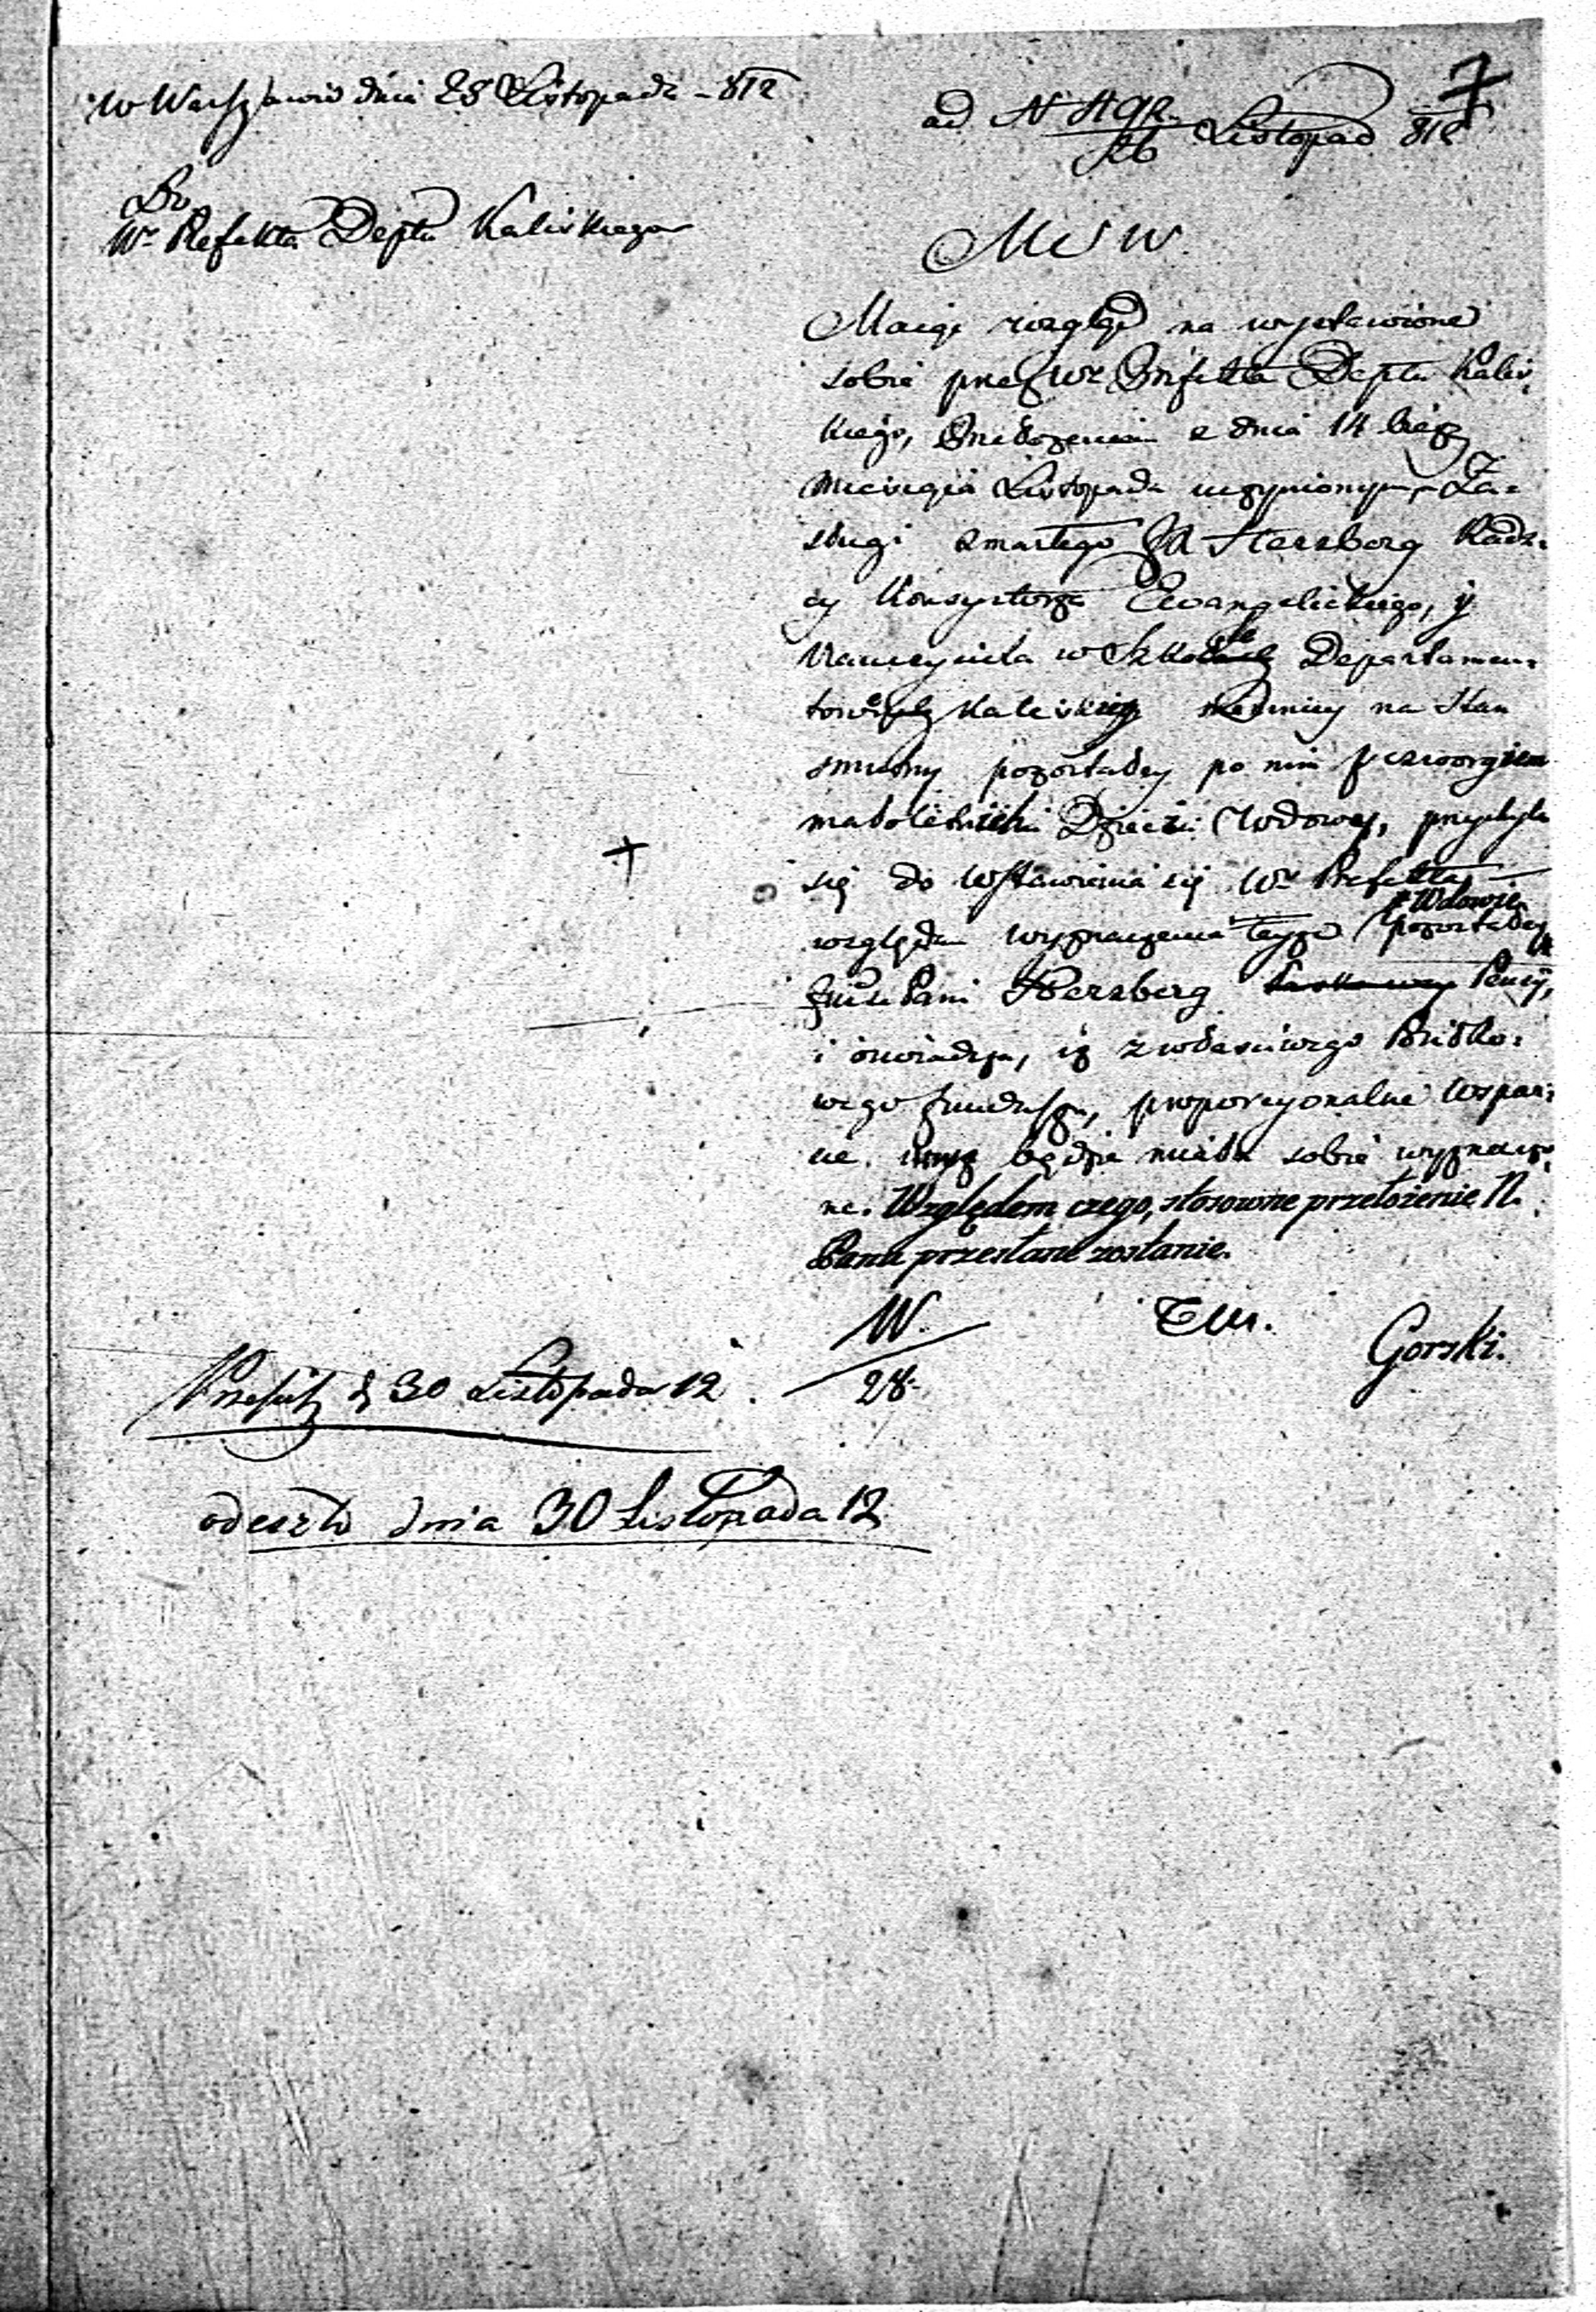 w Warszawie dnia 28 Listopada - 812
ad N 4192.
26 Listopad 812
7
Do
Wo Prefekta Deptu Kaliskiego
M S W
Maiąc wzgląd na wystawione
sobie przez Wo Prefekta Deptu Kalis,
kiego, Przełożeniem z dnia 14 bież
Miesiąca Listopada uczynionym, Za=
sługi zmarłego JP Herzberg Radz=
cy Konsystorza Ewangelickiego, y
Nauczyciela w Szkole Departamen=
towey Kaliskiey niemniey na Stan
smutny pozostałey po nim z czworgiem
małoletnich Dzieci Wdowy, przychyla
się do wstawienia się Wo Prefekta
względem wyznaczenia teyże pozostałey
Wdowie
JWe Pani Herzberg Pensyi,
i oświadcza, iż z właściwego
wego funduszu, proporcyonalne Wspar=
cie będzie miała sobie wyznaczo=
ne. Względem czego, stosowne przełożenie N.
Panu przesłane zostanie.
W.
28.
Gorski.
d 30 Listopada 12.
odeszło dnia 30 Listopada 12